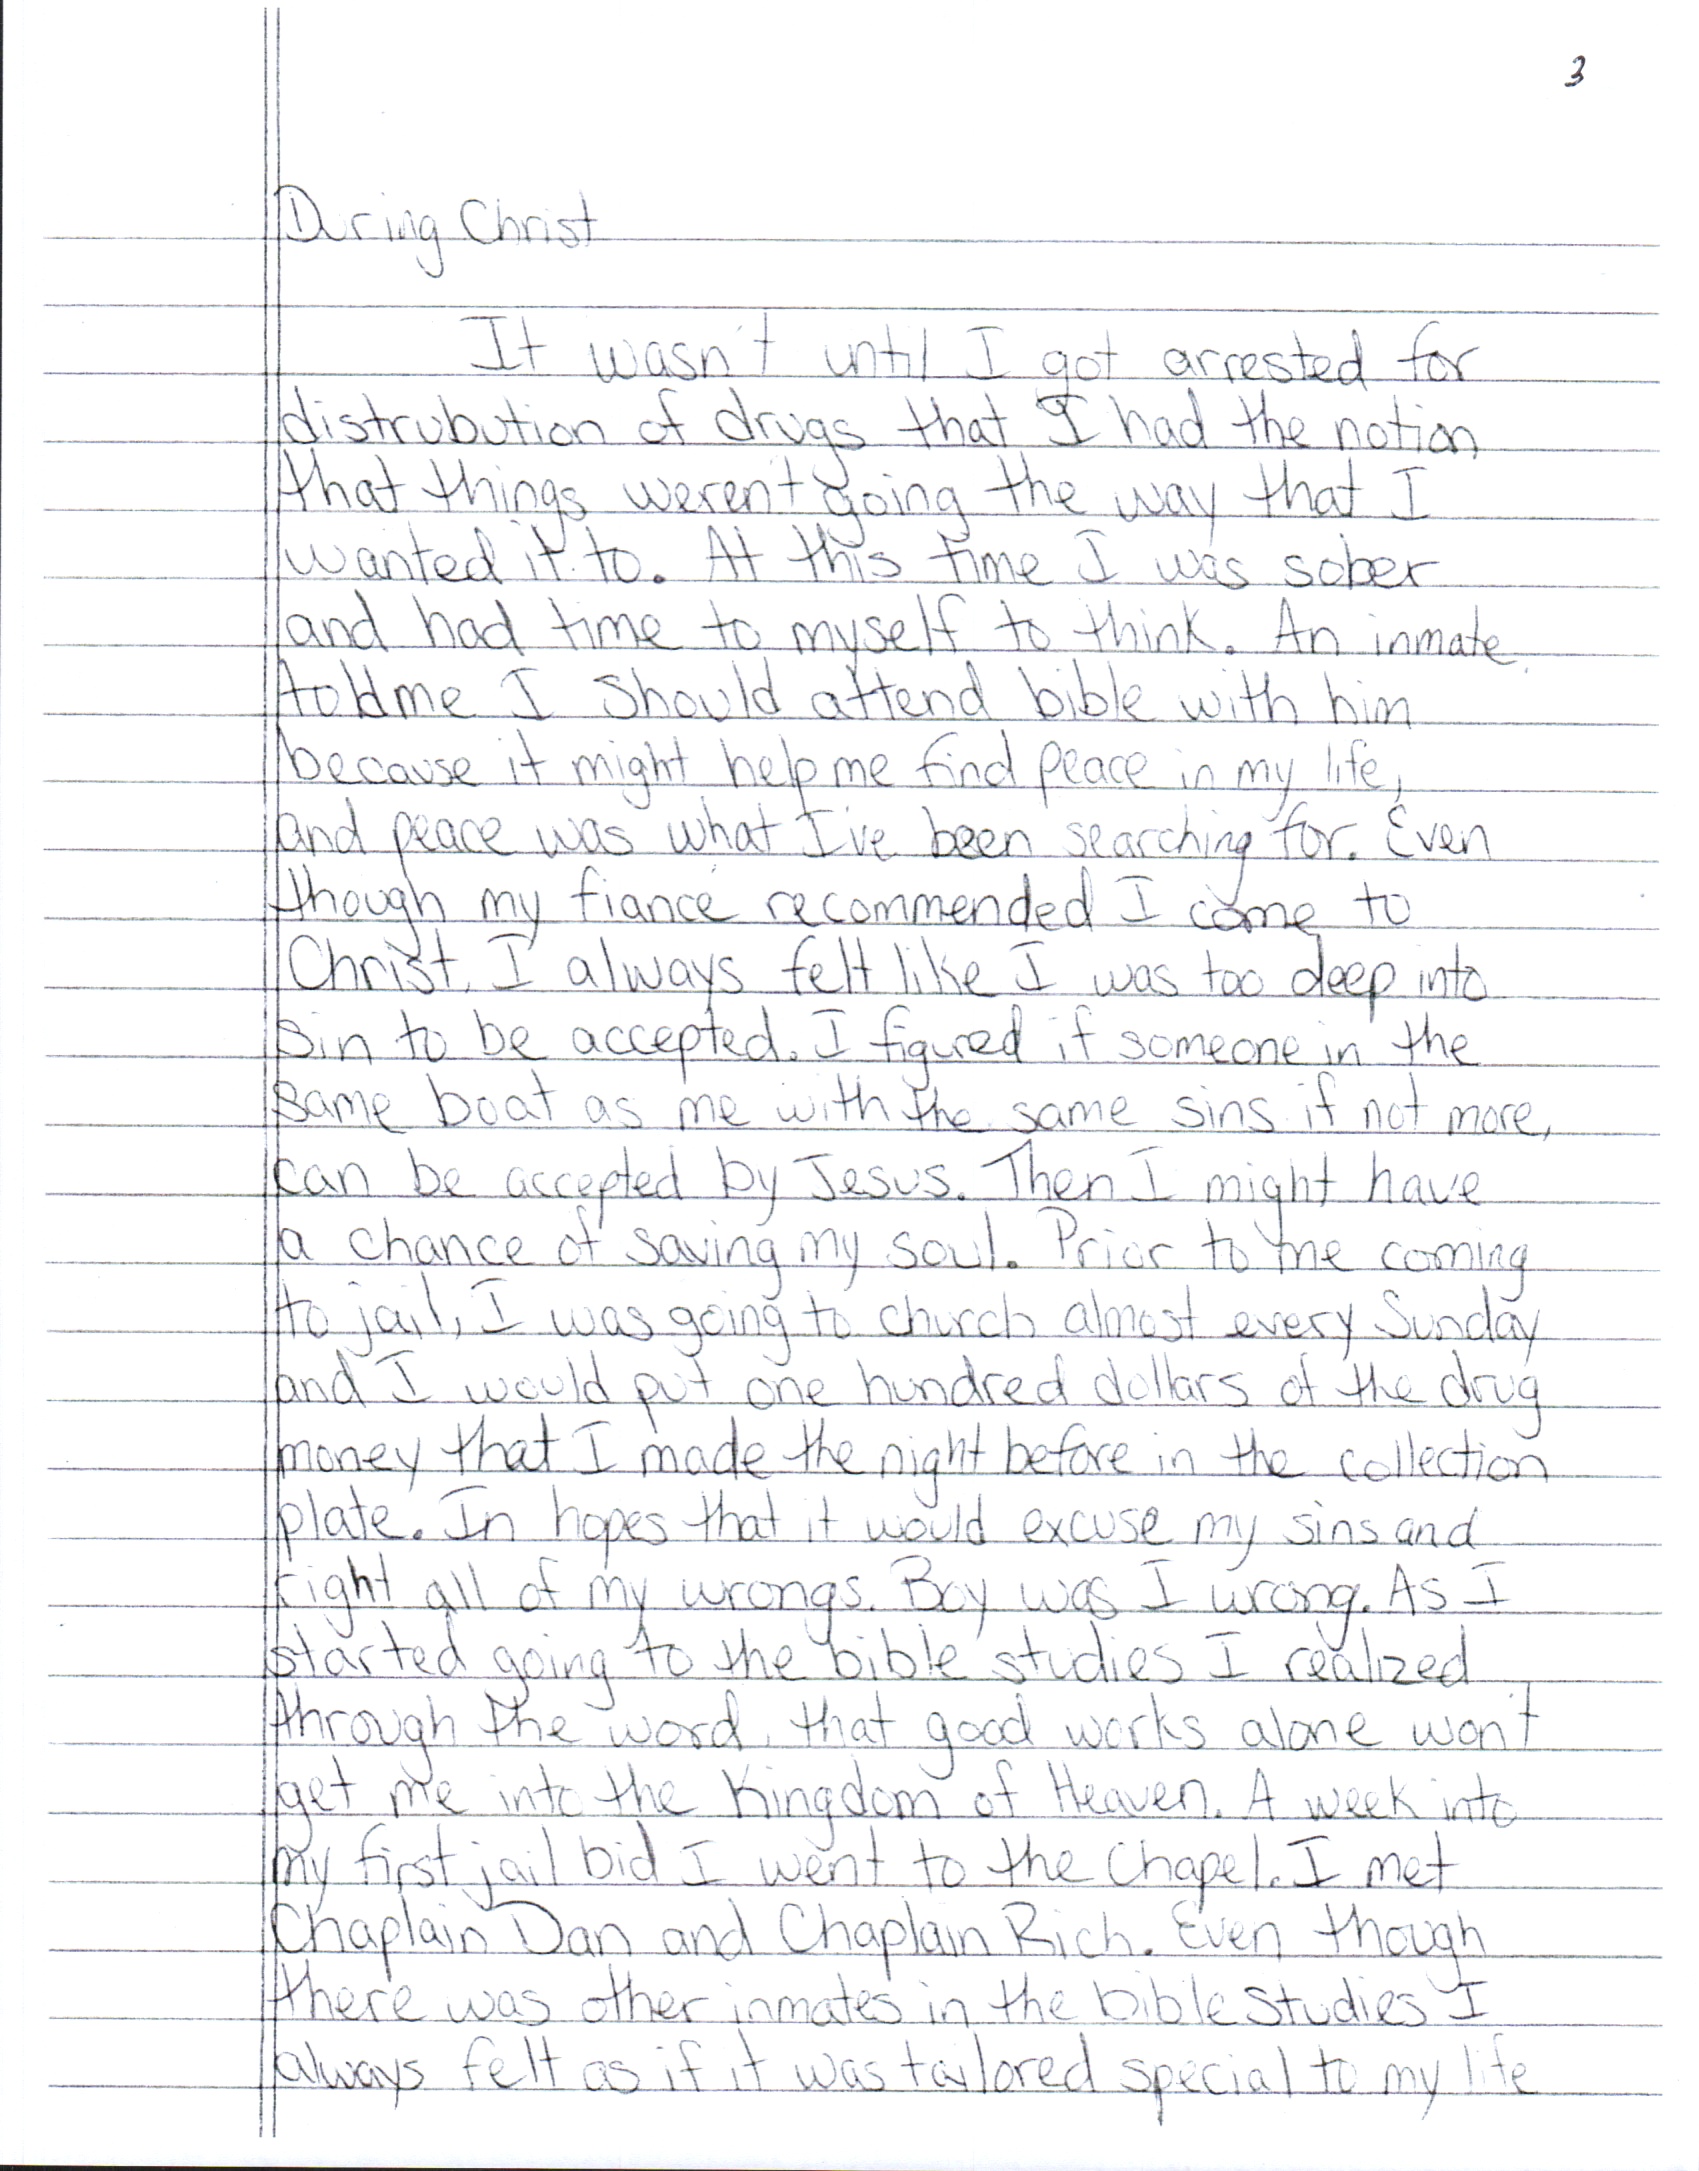 3
During Christ
It wasn't until I got arrested for
distrubution of drugs that I had the notion
that things weren't going the way that I
wanted it to. At this time I was sober
and had time to myself to think. An inmate
told me I should attend bible with him
because it might help me find peace in my life,
and peace was what I've been searching for. Even
though my fiance recommended I come to
Christ, I always felt like I was too deep into
sin to be accepted. I figured if someone in the
same boat as me with the same sins if not more,
can be accepted by Jesus. Then I might have
a chance of saving my soul. Prior to me coming
to jail, I was going to church almost every Sunday
and I would put one hundred dollars of the drug
money that I made the night before in the collection
plate. In hopes that it would excuse my sins and
right all of my wrongs. Boy was I wrong. As I
started going to the bible studies I realized
through the word, that good works alone won't
get me into the Kingdom of Heaven. A week into
my first jail bid I went to the Chapel. I met
Chaplain Dan and Chaplain Rich. Even though
there was other inmates in the bible studies I
always felt as if it was tailored special to my life